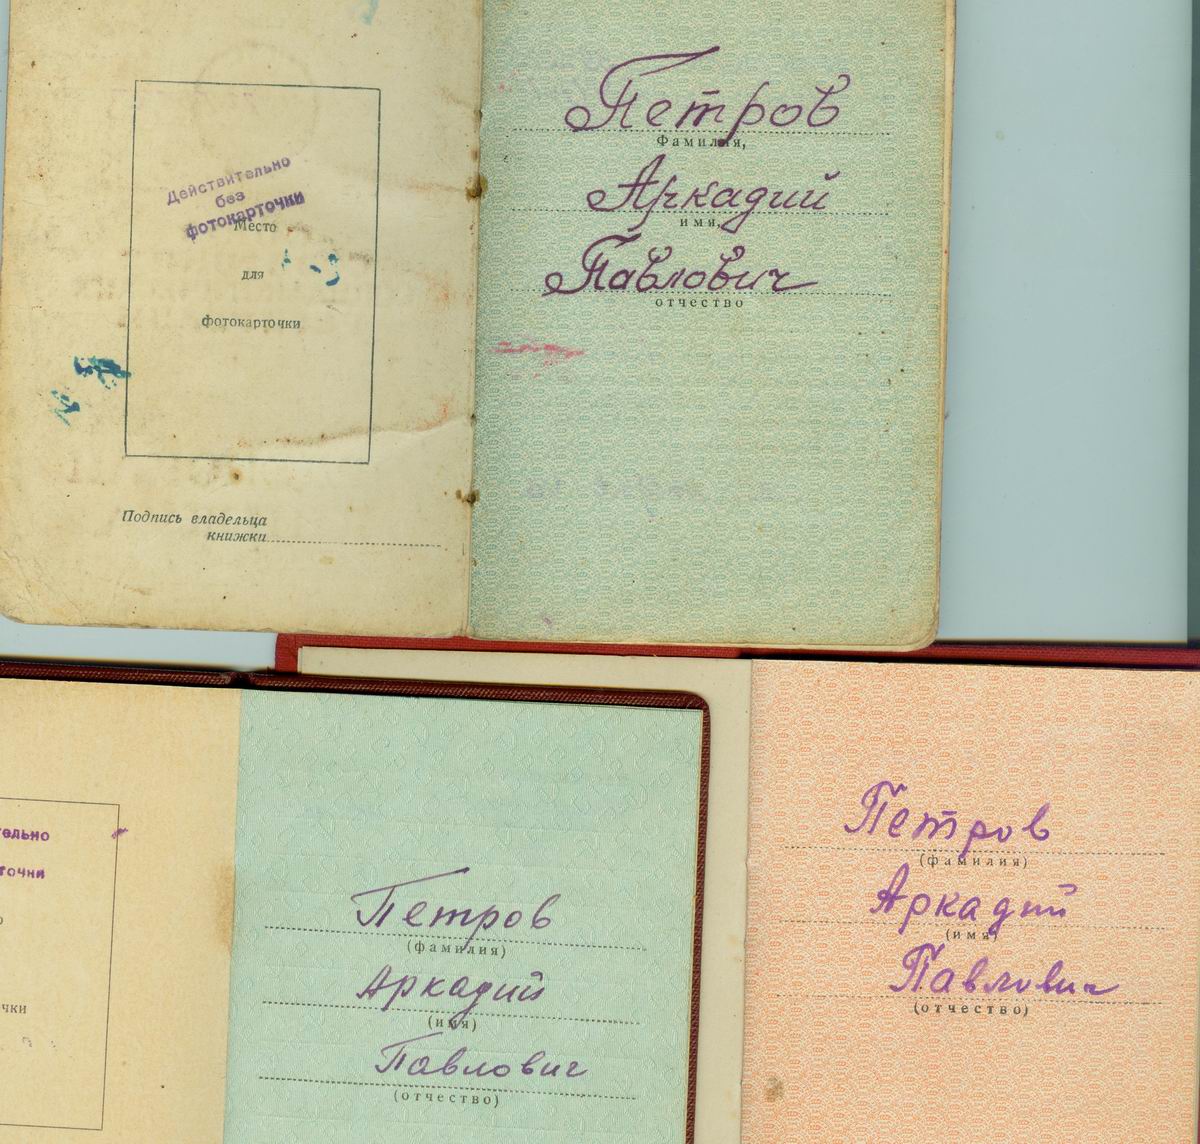 Действительно
без
фотокарточки
Место
для
фотокарточки
Подпись владельца
книжки
Петров
Фамилия,
Аркадий
имя,
Павлович
отчество
тельно
точни
чки
Петров
(фамилия)
Аркадий
(имя)
Павлович
(отчество)
Петров
(фамилия)
Аркадий
(имя)
Павлович
(отчество)